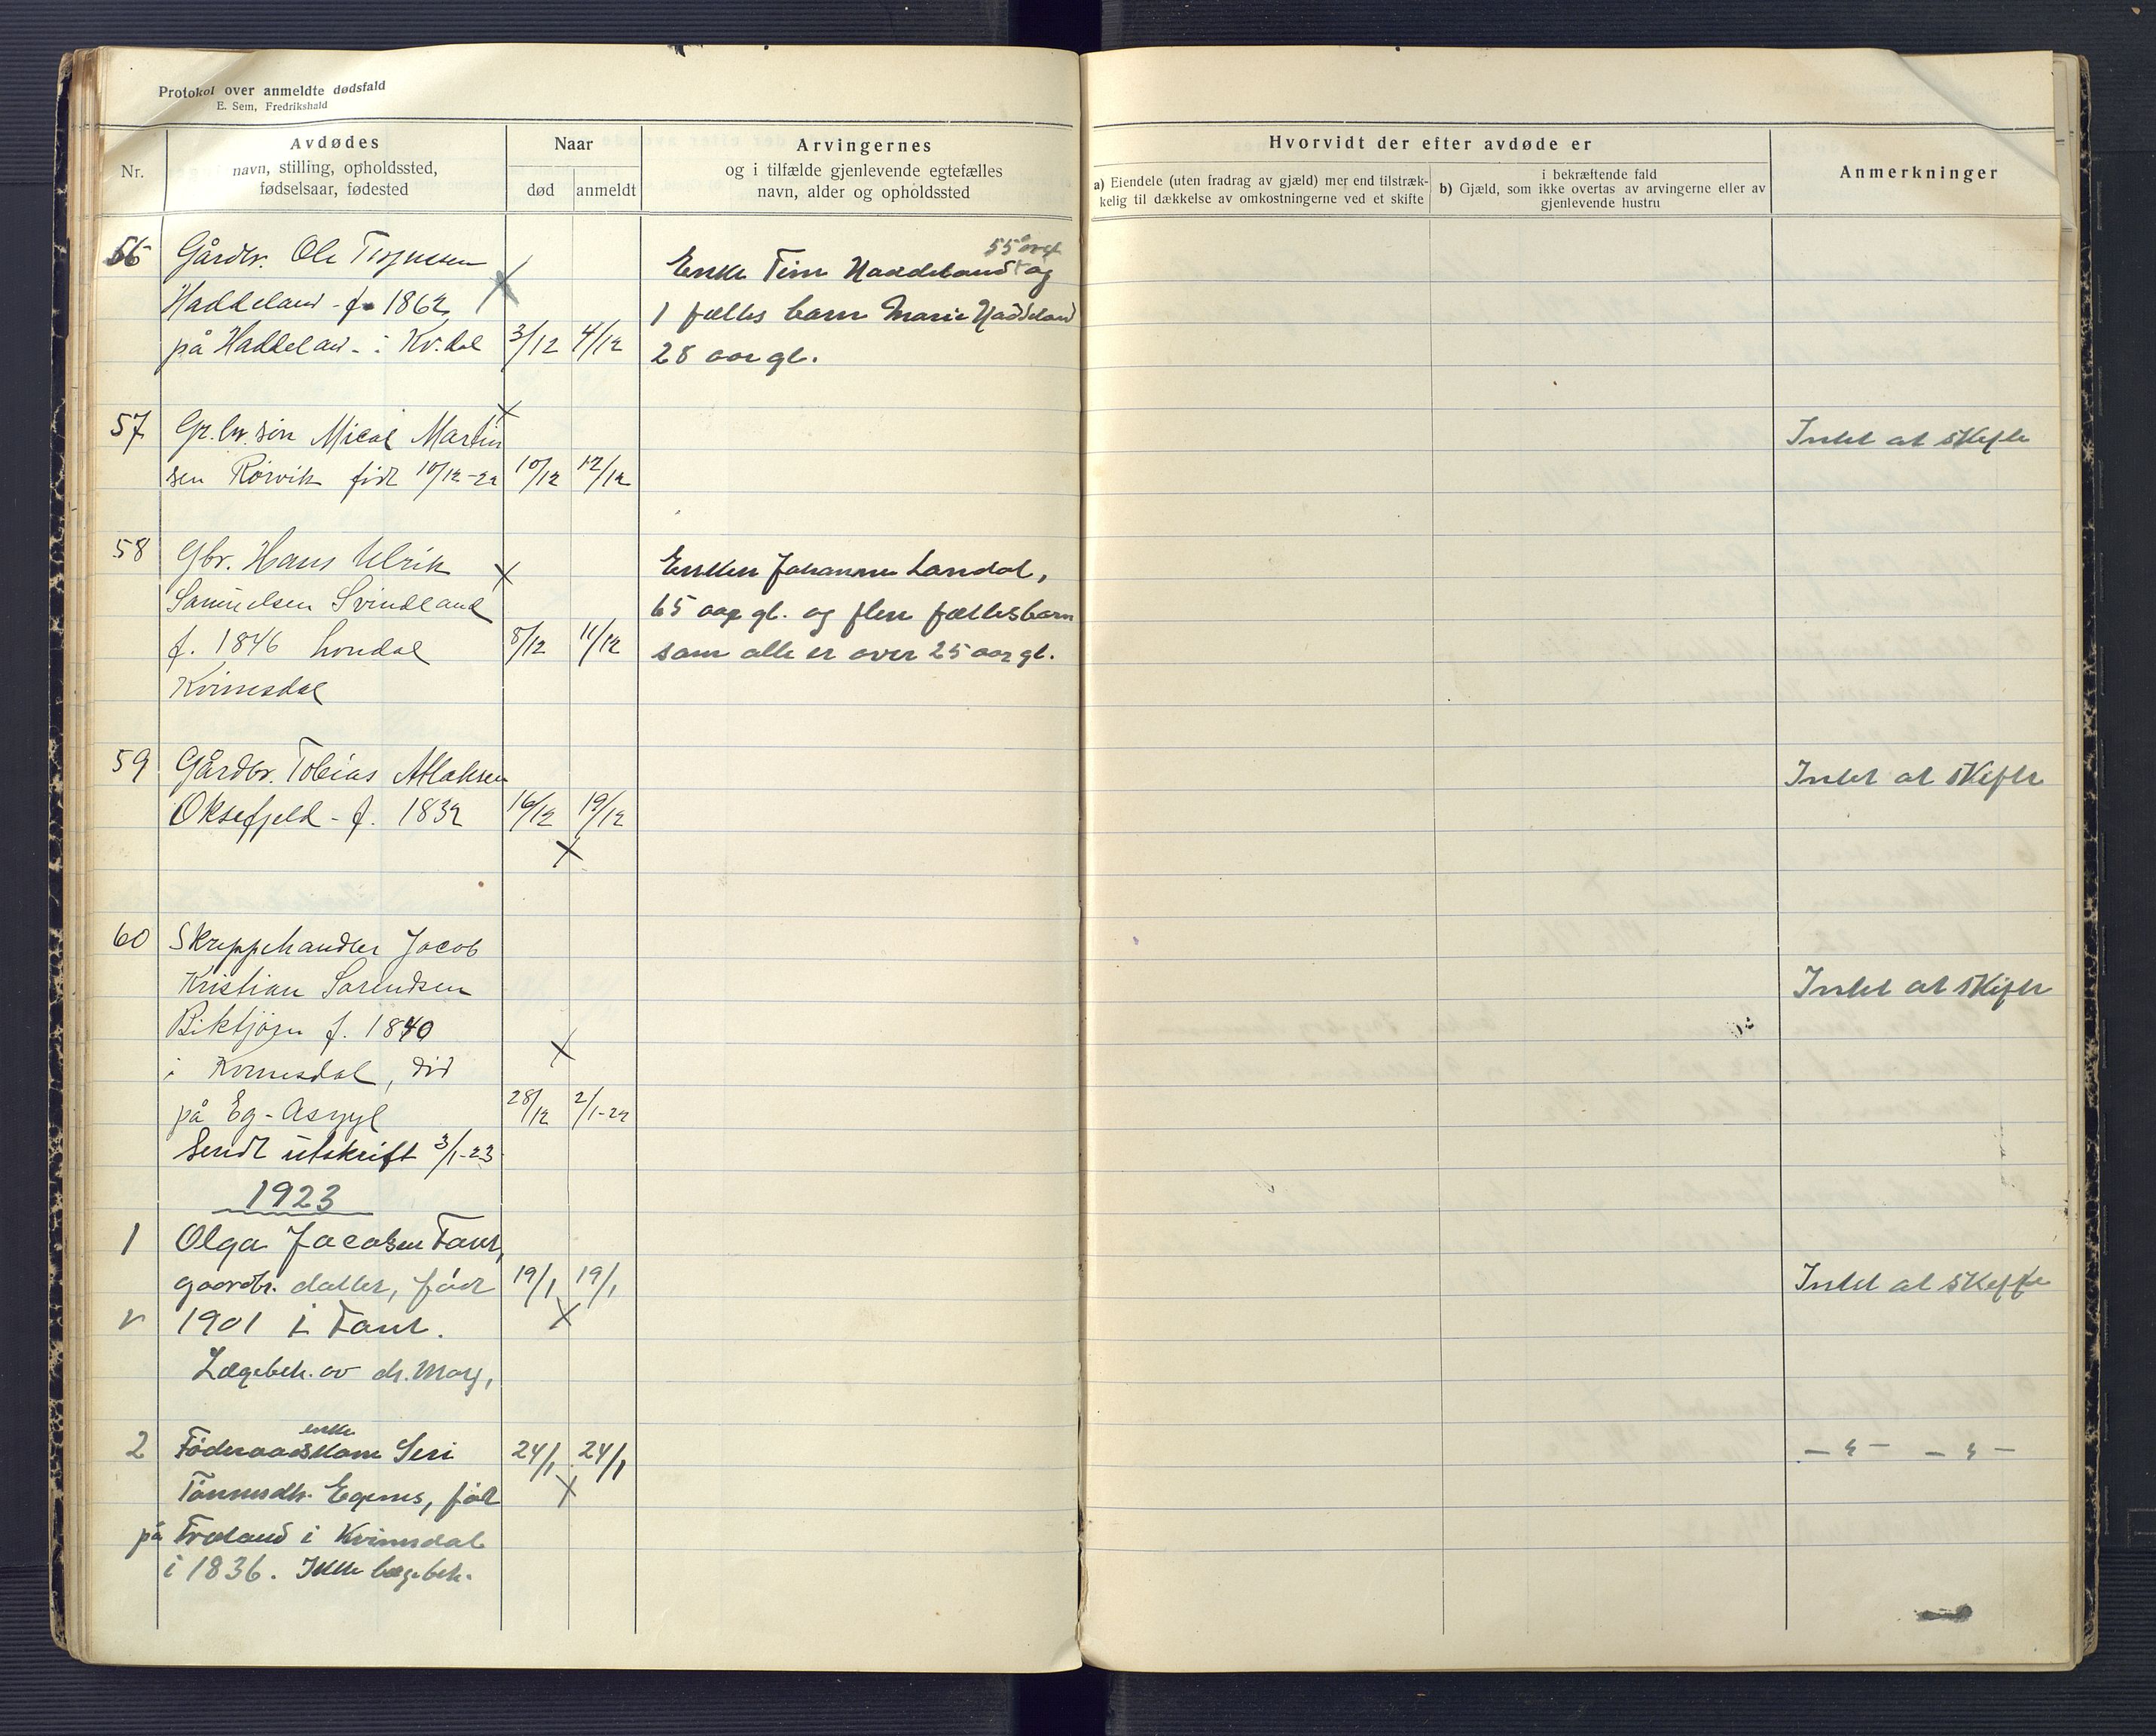 Protokol over anmeldte dødsfald
E. Sem, Fredrikshald
Nr.
Avdødes
navn, stilling, opholdssted,
fødselsaar, fødested
Naar
død
anmeldt
Arvingernes
og i tilfælde gjenlevende egtefælles
navn, alder og opholdssted
Hvorvidt der efter avdøde er
a) Eiendele (uten fradrag av gjæld) mer end tilstræk-
kelig til dækkelse av omkostningerne ved et skifte
i bekræftende fald
b) Gjæld, som ikke overtas av arvingerne eller av
gjenlevende hustru
Anmerkninger
56 Gårdbr. Ole
Haddeland - f. 1862
på Haddeland i Kv.dal 3/12 4/12
Enke Haddeland 55 og
1 fælles barn Marie Haddeland
28 aar gl.
57 Gr.br. søn Mical Martin
sen Rørvik født 10/12-22 10/12 12/12
Intet at skifte
58 Gbr. Hans Ulrik
Samuelsen Svindland
f. 1846 Londal 8/12 11/12
Kvinesdal
Enken Johanne Londal,
65 aar gl. og flere fællesbarn
som alle er over 25 aar gl.
59 Gårdbr. Tobias Atlaksen
Oksefjeld - f. 1832 16/12 19/12
Intet at skifte
60 Skreppehandler Jacob
Kristian Sørensen
f. 1840
i Kvinesdal, død
på Eg-Asyl 28/12 2/1-23
Sendt utskrift 3/1-23
Intet at skifte
1923
1 Olga Jacobsen
gaardbr. datter, født 19/1 19/1
1901 i
Lægebeh. av dr.
Intet at skifte
enke
2 Føderaadskone Seri 24/1 24/1
Tønnesdtr. Egenes, født
på Frøland i Kvinesdal
i 1836. Ikke lægebeh.
— " — — " —